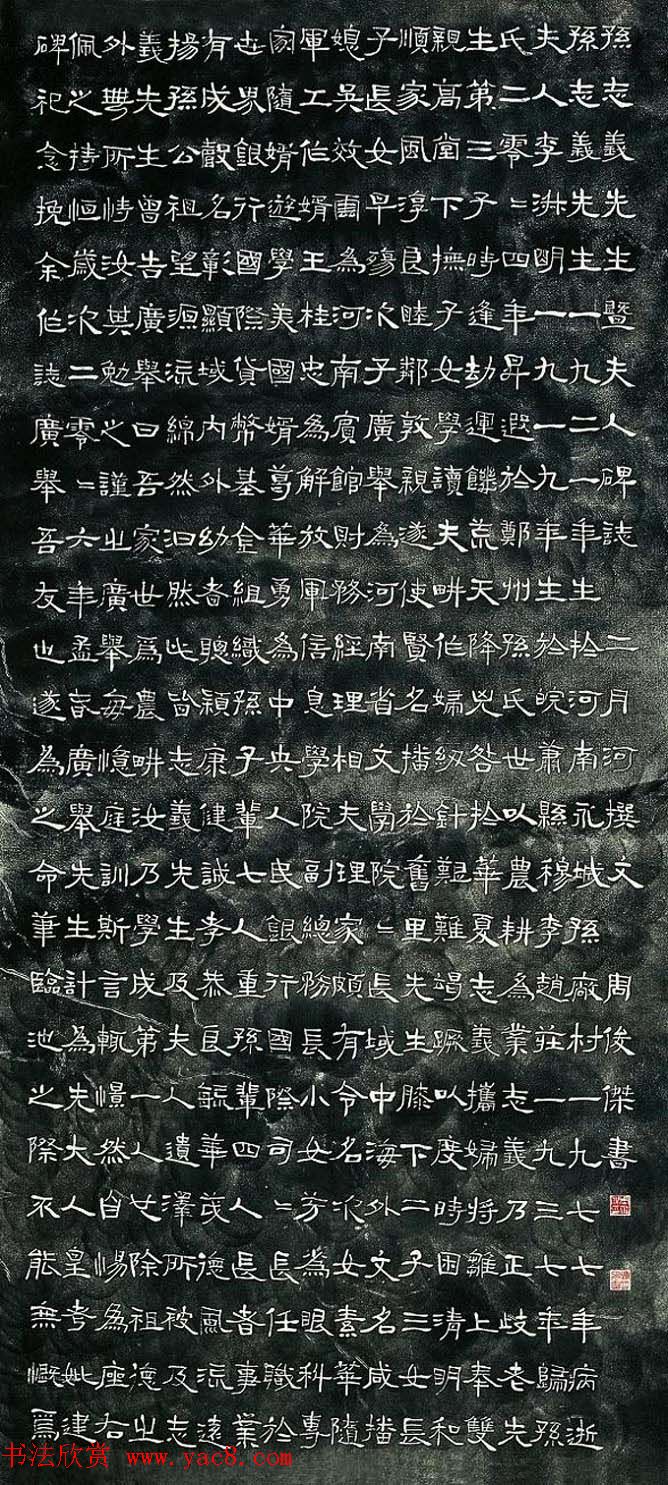 孫志義先生暨夫人碑誌 二月河撰文 周俊傑書
孫志義先生一九二一年生於河南永城孫廠村一九七七年病逝
夫人李淋明一九一九年生於皖蕭縣穆李趙莊一九三七年歸孫
氏二零〻四年昇遐於鄭州孫氏世以農耕為業志義乃正岐老先
生第三子時逢劫運饑荒天降兇咎於華夏志義攜婦將雛上奉雙
親高堂下撫子女學讀夫畊作婦紉針艱難竭蹶以度時困清明和
順家風淳良睦鄰敦親遂使賢名播於舊里先生膝下二子三女長
子長女早殤次子廣舉為河南省文學院〻長域中海外文名咸播
媳吳效雨為河南賓館財務經理相夫理家頗有令名次女素華隨
軍工作婿王桂忠為解放軍信息學院副總務長小女芳為眼科專
家隨婿遊學美國婿華勇為中央人民銀行國際司〻長任職於
世界銀行國際貨幣基金組織孫子輩七人重孫輩四人長者事業
有成名彰顯域內外幼者聰穎康健誠孝恭良毓華茂德風流遠
揚孫公祖望源流綿然洄然此皆志義先生及夫人遺澤所被及志
義先生曾告廣舉曰吾家世為農畊汝乃學成第一人也除祖德之
外無所恃汝其勉之謹之廣舉每憶庭訓斯言輒憬然自惕為座右
佩之持恒歲次二零〻六年孟廣舉先生計為先大人皇考妣建
碑祀念挽余作誌廣舉吾友也遂為之命筆臨池之際不能無慨焉
书法欣赏 www.yac8.com